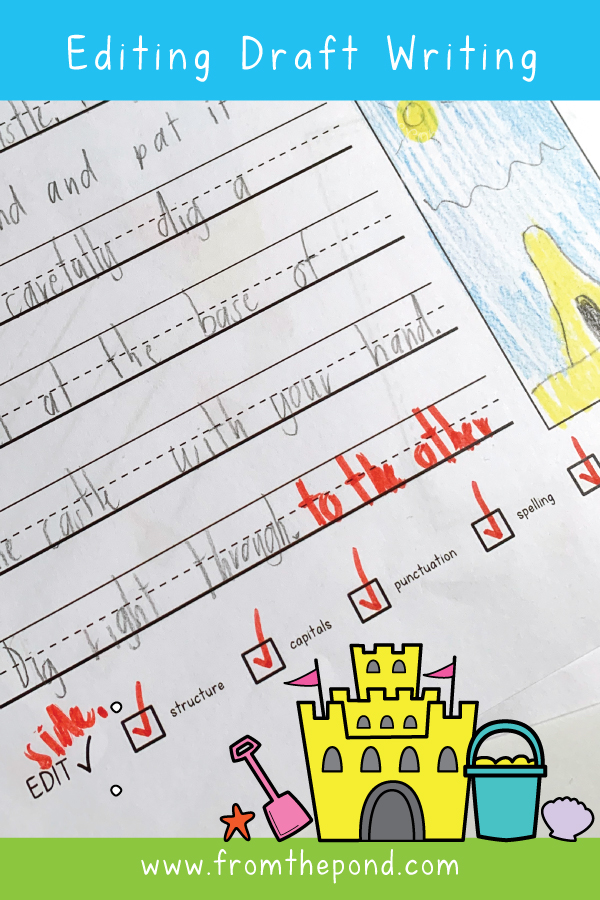 Editing Draft Writing
stle.
nd and pat it
carefully dig a
at the base of
he castle with your hand.
Dig right through. to the other
side.
EDIT ✓
structure
capitals
punctuation
spelling
www.fromthepond.com